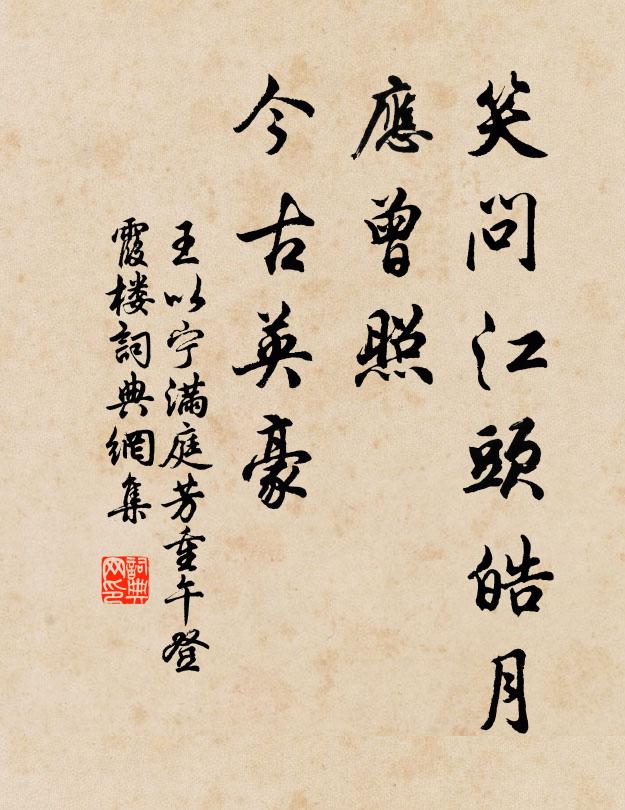 笑問江頭皓月
應曾照
今古英豪
王以宁滿庭芳重午登
霞楼詞典網集
詞典网印